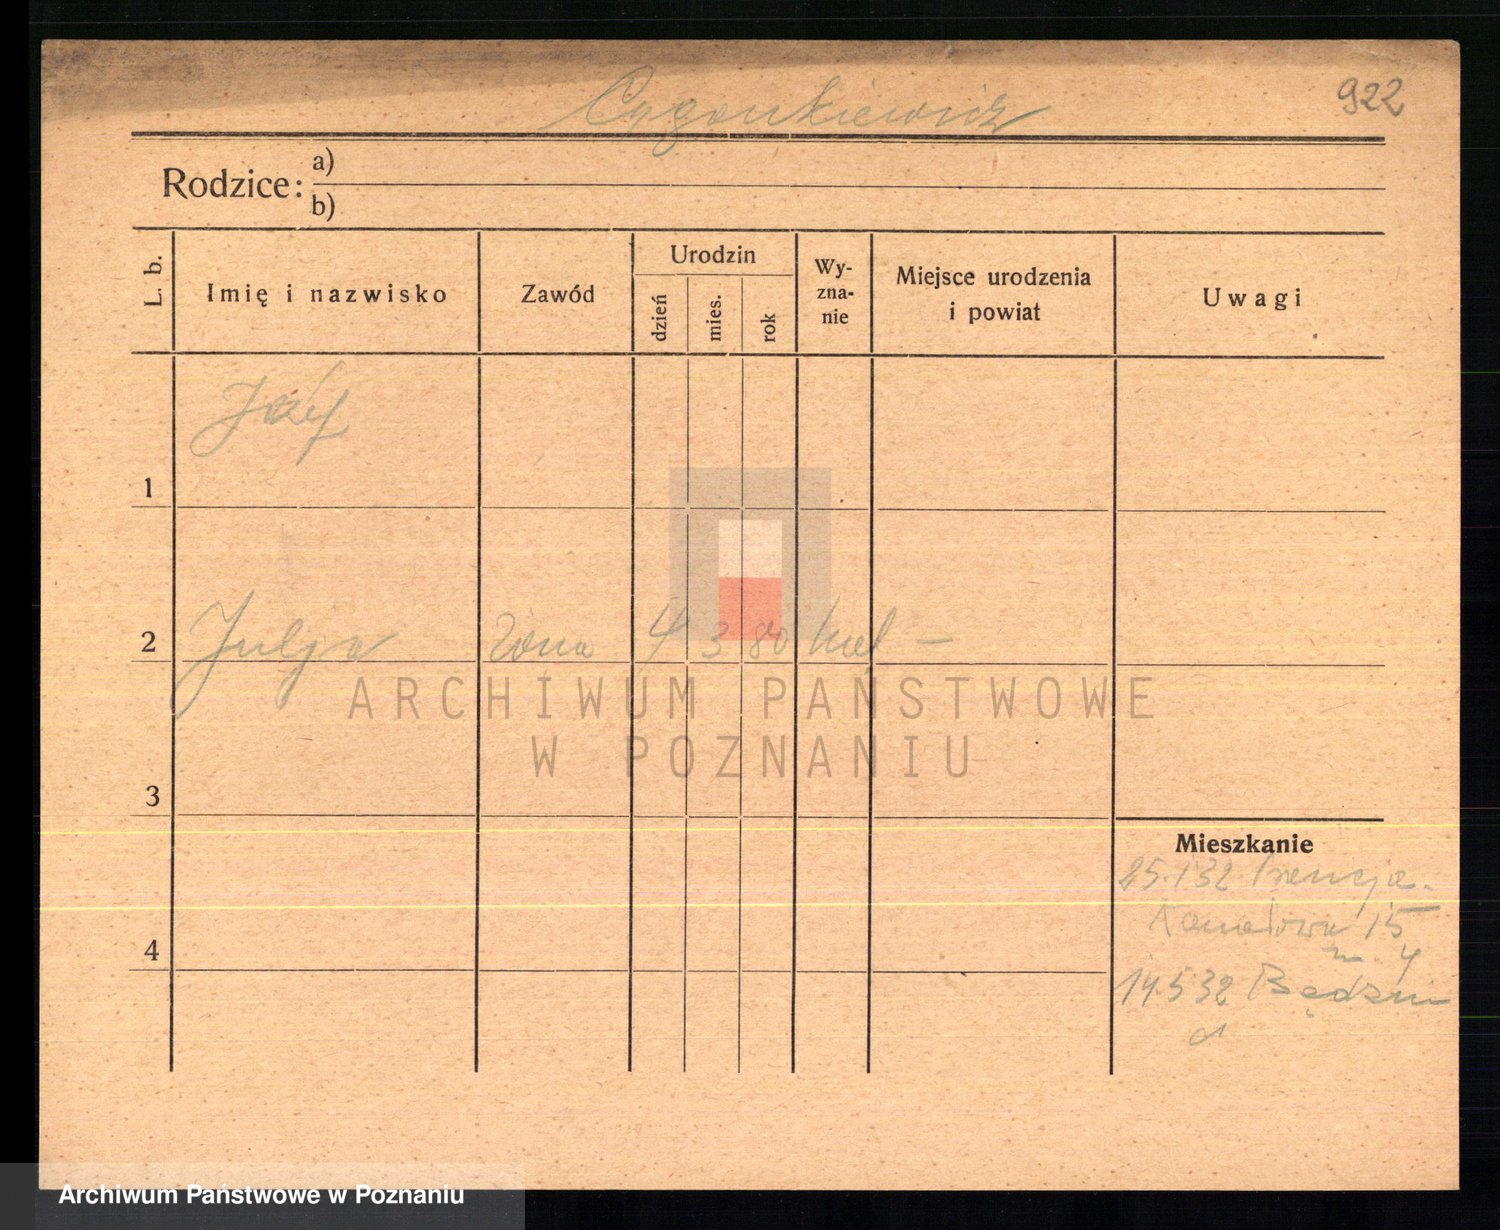 Cygankiewicz
922
Rodzice:
a)
b)
L. b.
Imię i nazwisko
Zawód
Urodzin
dzień
mies.
rok
Wy-
zna-
nie
Miejsce urodzenia
i powiat
Uwagi
Józef
1
2 Julja żona 4 3 80 kat —
3
4
Mieszkanie
25.1 32
Kanałowa 15
m. 4
14.5 32 Będzin
ARCHIWUM PAŃSTWOWE
W POZNANIU
Archiwum Państwowe w Poznaniu